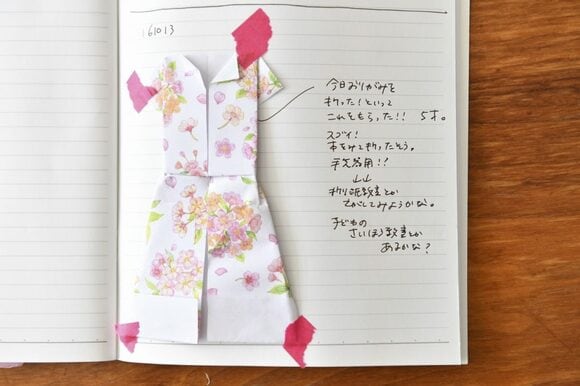 161013
今日おりがみを
折った！といって
これをもらった！！ 5才。
スゴイ！
本をみて折ったそう。
手先器用！！
↓↓
折り紙教室とか
さがしてみようかな。
子どもの
さいほう教室とか
あるかな？